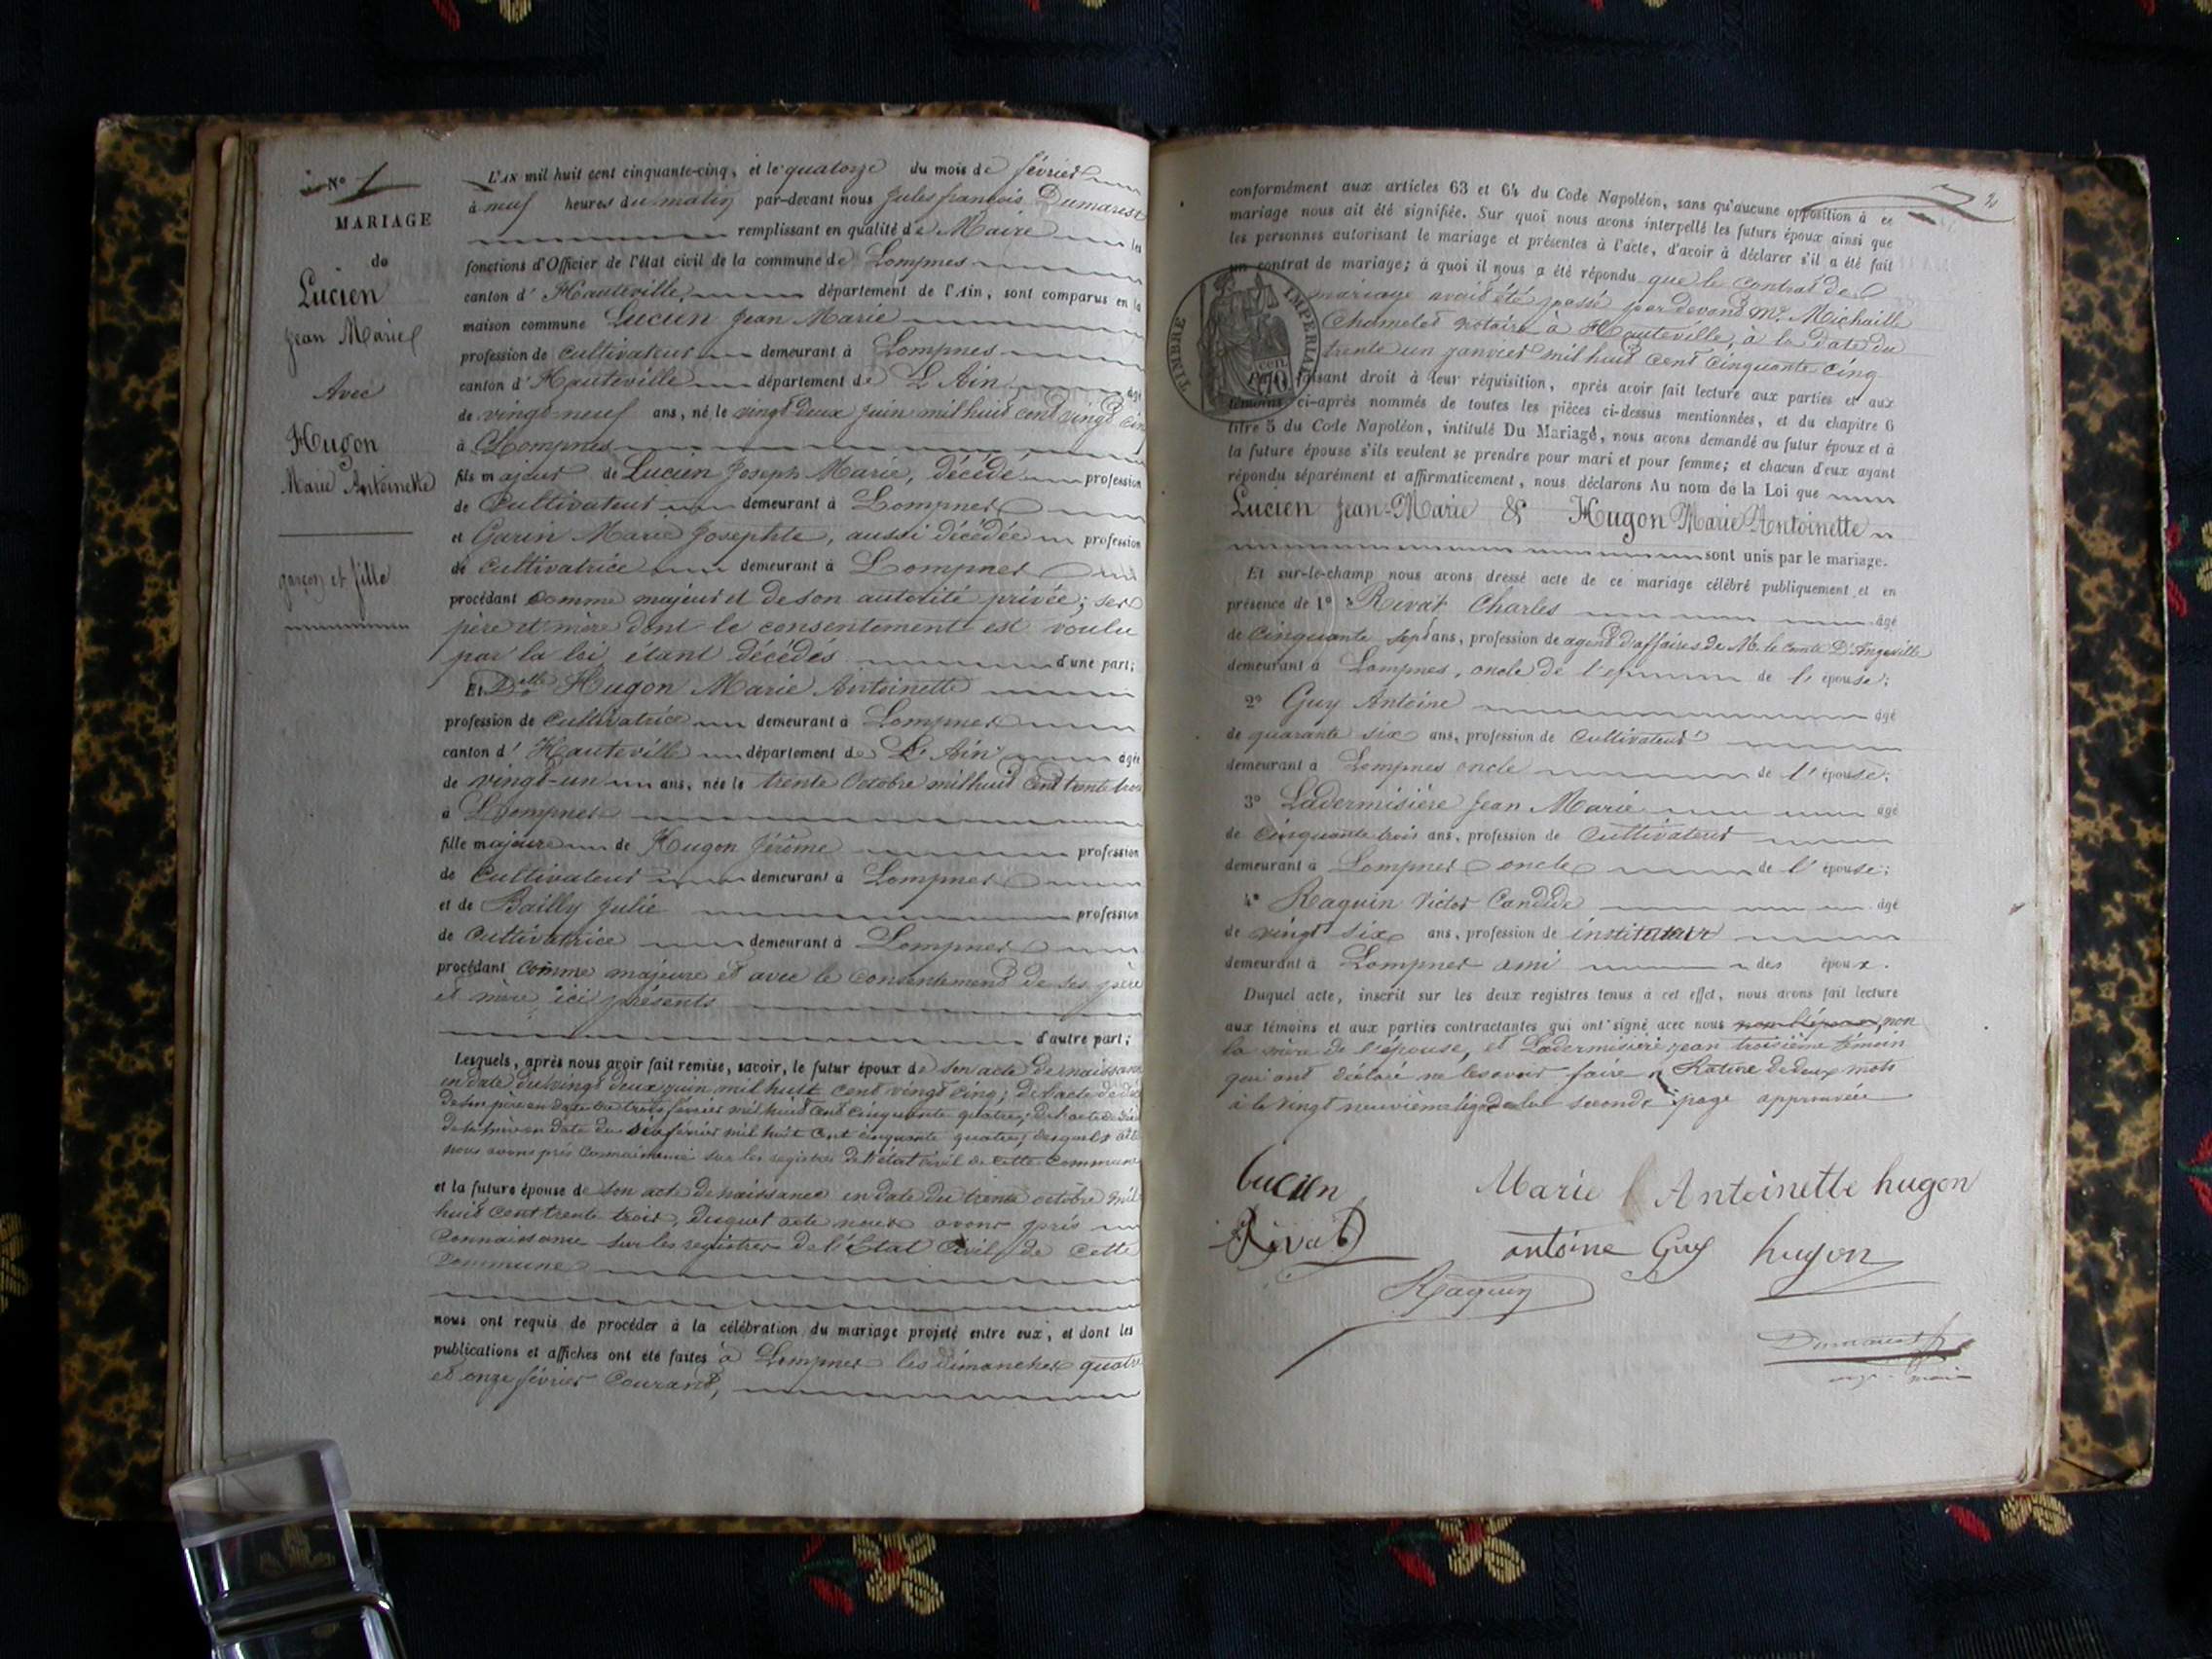 N° 1
MARIAGE
de
Lucien
Jean Marie
Avec
Hugon
Marie Antoinette
garçon et fille
L'AN mil huit cent cinquante-cinq, et le quatorze du mois de février
à neuf heures du matin par-devant nous Jules françois Dumarest
remplissant en qualité de Maire les
fonctions d'Officier de l'état civil de la commune de Lompnes
canton d' Hauteville, département de l'Ain, sont comparus en la
maison commune Lucien Jean Marie
profession de Cultivateur demeurant à Lompnes
canton d' Hauteville département de L'Ain âgé
de vingt-neuf ans, né le vingt deux juin mil huit cent vingt cinq
à Lompnes
fils majeur de Lucien Joseph Marie, décédé profession
de Cultivateur demeurant à Lompnes
et Garin Marie Josephte, aussi décédée profession
de cultivatrice demeurant à Lompnes
procédant comme majeur et de son autorité privée; ses
père et mère dont le consentement est voulu
par la loi étant décédés d'une part;
Et Delle Hugon Marie Antoinette
profession de Cultivatrice demeurant à Lompnes
canton d' Hauteville département de L'Ain âgée
de vingt-un ans, née le trente Octobre mil huit cent trente trois
à Lompnes
fille majeure de Hugon Jérôme profession
de Cultivateur demeurant à Lompnes
et de Bailly Julie profession
de Cultivatrice demeurant à Lompnes
procédant comme majeure et avec le consentement de ses père
et mère ici présents
d'autre part;
Lesquels, après nous avoir fait remise, savoir, le futur époux de son acte de naissance
en date du vingt deux juin mil huit cent vingt cinq; de l'acte de décès
de son père en date du trois février mil huit cent cinquante quatre; de l'acte de décès
de sa mère en date du février mil huit cent cinquante quatre; desquels actes
nous avons pris connaissance sur les registres de l'état civil de cette commune
et la future épouse de son acte de naissance en date du trente octobre mil
huit cent trente trois, duquel acte nous avons pris
connaissance sur les registres de l'Etat Civil de cette
Commune
nous ont requis de procéder à la célébration du mariage projeté entre eux, et dont les
publications et affiches ont été faites à Lompnes les dimanches quatre
et onze février Courant,
2
conformément aux articles 63 et 64 du Code Napoléon, sans qu'aucune opposition à ce
mariage nous ait été signifiée. Sur quoi nous avons interpellé les futurs époux ainsi que
les personnes autorisant le mariage et présentes à l'acte, d'avoir à déclarer s'il a été fait
un contrat de mariage; à quoi il nous a été répondu que le Contrat de
mariage avait été passé par devant Me Michaille
Chamelot notaire à Hauteville, à la date du
trente un janvier mil huit cent cinquante cinq
TIMBRE IMPERIAL
faisant droit à leur réquisition, après avoir fait lecture aux parties et aux
témoins ci-après nommés de toutes les pièces ci-dessus mentionnées, et du chapitre 6
titre 5 du Code Napoléon, intitulé Du Mariage, nous avons demandé au futur époux et à
la future épouse s'ils veulent se prendre pour mari et pour femme; et chacun d'eux ayant
répondu séparément et affirmativement, nous déclarons Au nom de la Loi que
Lucien Jean-Marie & Hugon Marie Antoinette
sont unis par le mariage.
Et sur-le-champ nous avons dressé acte de ce mariage célébré publiquement et en
présence de 1° Rivat Charles âgé
de Cinquante sept ans, profession de agent d'affaires de M. le Comte D'Angeville
demeurant à Lompnes, oncle de l'ep de l' épouse;
2° Guy Antoine âgé
de quarante six ans, profession de Cultivateur
demeurant à Lompnes oncle de l' épouse;
3° Ladermisière Jean Marie âgé
de Cinquante trois ans, profession de Cultivateur
demeurant à Lompnes oncle de l' épouse;
4° Raquin Victor Candide âgé
de vingt six ans, profession de instituteur
demeurant à Lompnes ami des époux.
Duquel acte, inscrit sur les deux registres tenus à cet effet, nous avons fait lecture
aux témoins et aux parties contractantes qui ont signé avec nous non
la mère de l'épouse, et Ladermisière jean troisième témoin
qui ont déclaré ne le savoir faire Rature de deux mots
à la vingt neuvième ligne de la seconde page approuvée
Lucien
Marie Antoinette hugon
Rivat
antoine Guy hugon
Raquin
Dumarest